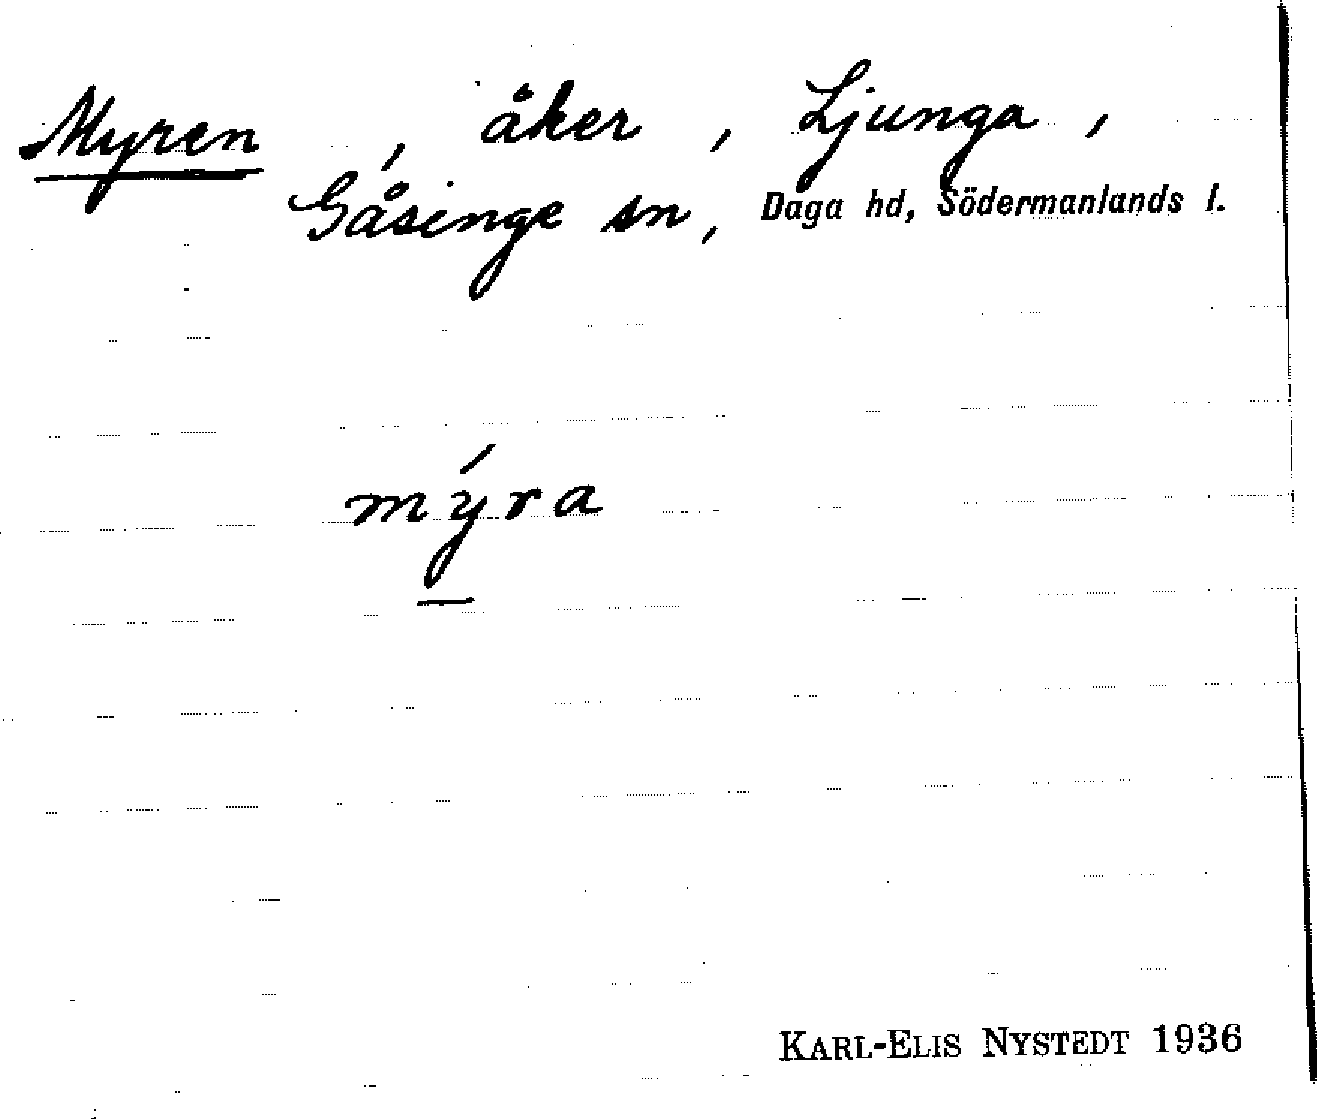 Myren, åker, Ljunga,
Gåsinge sn, Daga hd, Södermanlands l.
mýra
KARL-ELIS NYSTEDT 1936